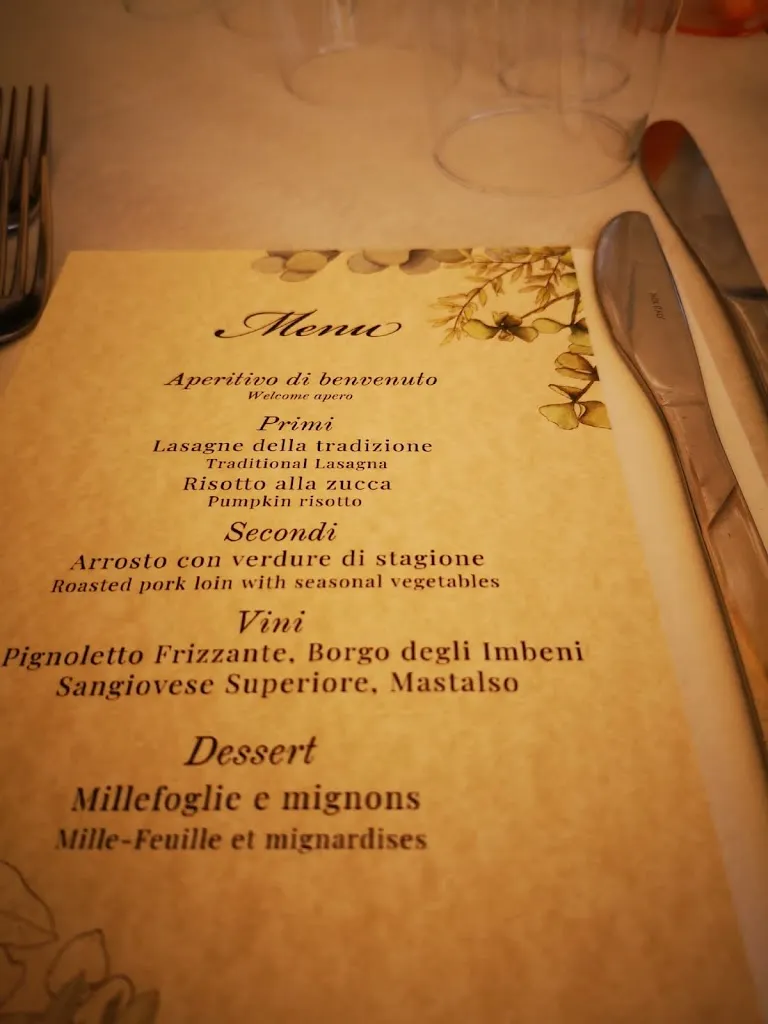 Menu
Aperitivo di benvenuto
Welcome apero
Primi
Lasagne della tradizione
Traditional Lasagna
Risotto alla zucca
Pumpkin risotto
Secondi
Arrosto con verdure di stagione
Roasted pork loin with seasonal vegetables
Vini
Pignoletto Frizzante, Borgo degli Imbeni
Sangiovese Superiore, Mastalso
Dessert
Millefoglie e mignons
Mille-Feuille et mignardises